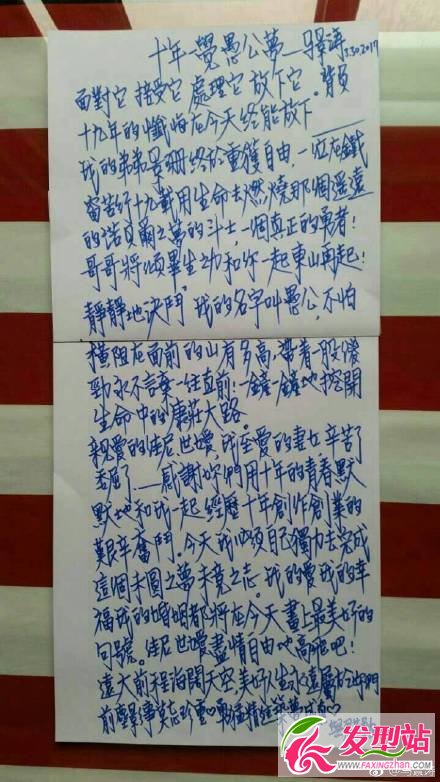 十年一覺愚公夢——驛濤 3.30 2017
面對它 接受它 處理它 放下它。背負
十九年的懺悔在今天终能放下
我的弟弟景珊終於重獲自由，一個在鐵
窗苦行十九載用生命去燃燒那個遥遠
的諾貝爾之夢的斗士，一個真正的勇者！
哥哥將傾畢生之力和你一起東山再起！
靜靜地決鬥，我的名字叫愚公，不怕
橫阻在面前的山有多高，帶着一股傻
勁永不言棄一往直前！一鏟一鏟地挖開
生命中的康莊大路。
親愛的佳尼 也媛，我至愛的妻女 辛苦了
感謝你們用十年的青春默
默地和我一起 經歷十年創作創業的
艱辛奮鬥。今天我必須自己獨力去完成
這個未圓之夢未竟之志。我的愛我的幸
福我的婚姻都將在今天畫上最美好的
句號。佳尼 也媛 盡情自由地高飛吧！
遠大前程海闊天空，美好人生永遠屬於妳們
前塵影事莫忘珍重
发型站
WWW.FAXINGZHAN.COM